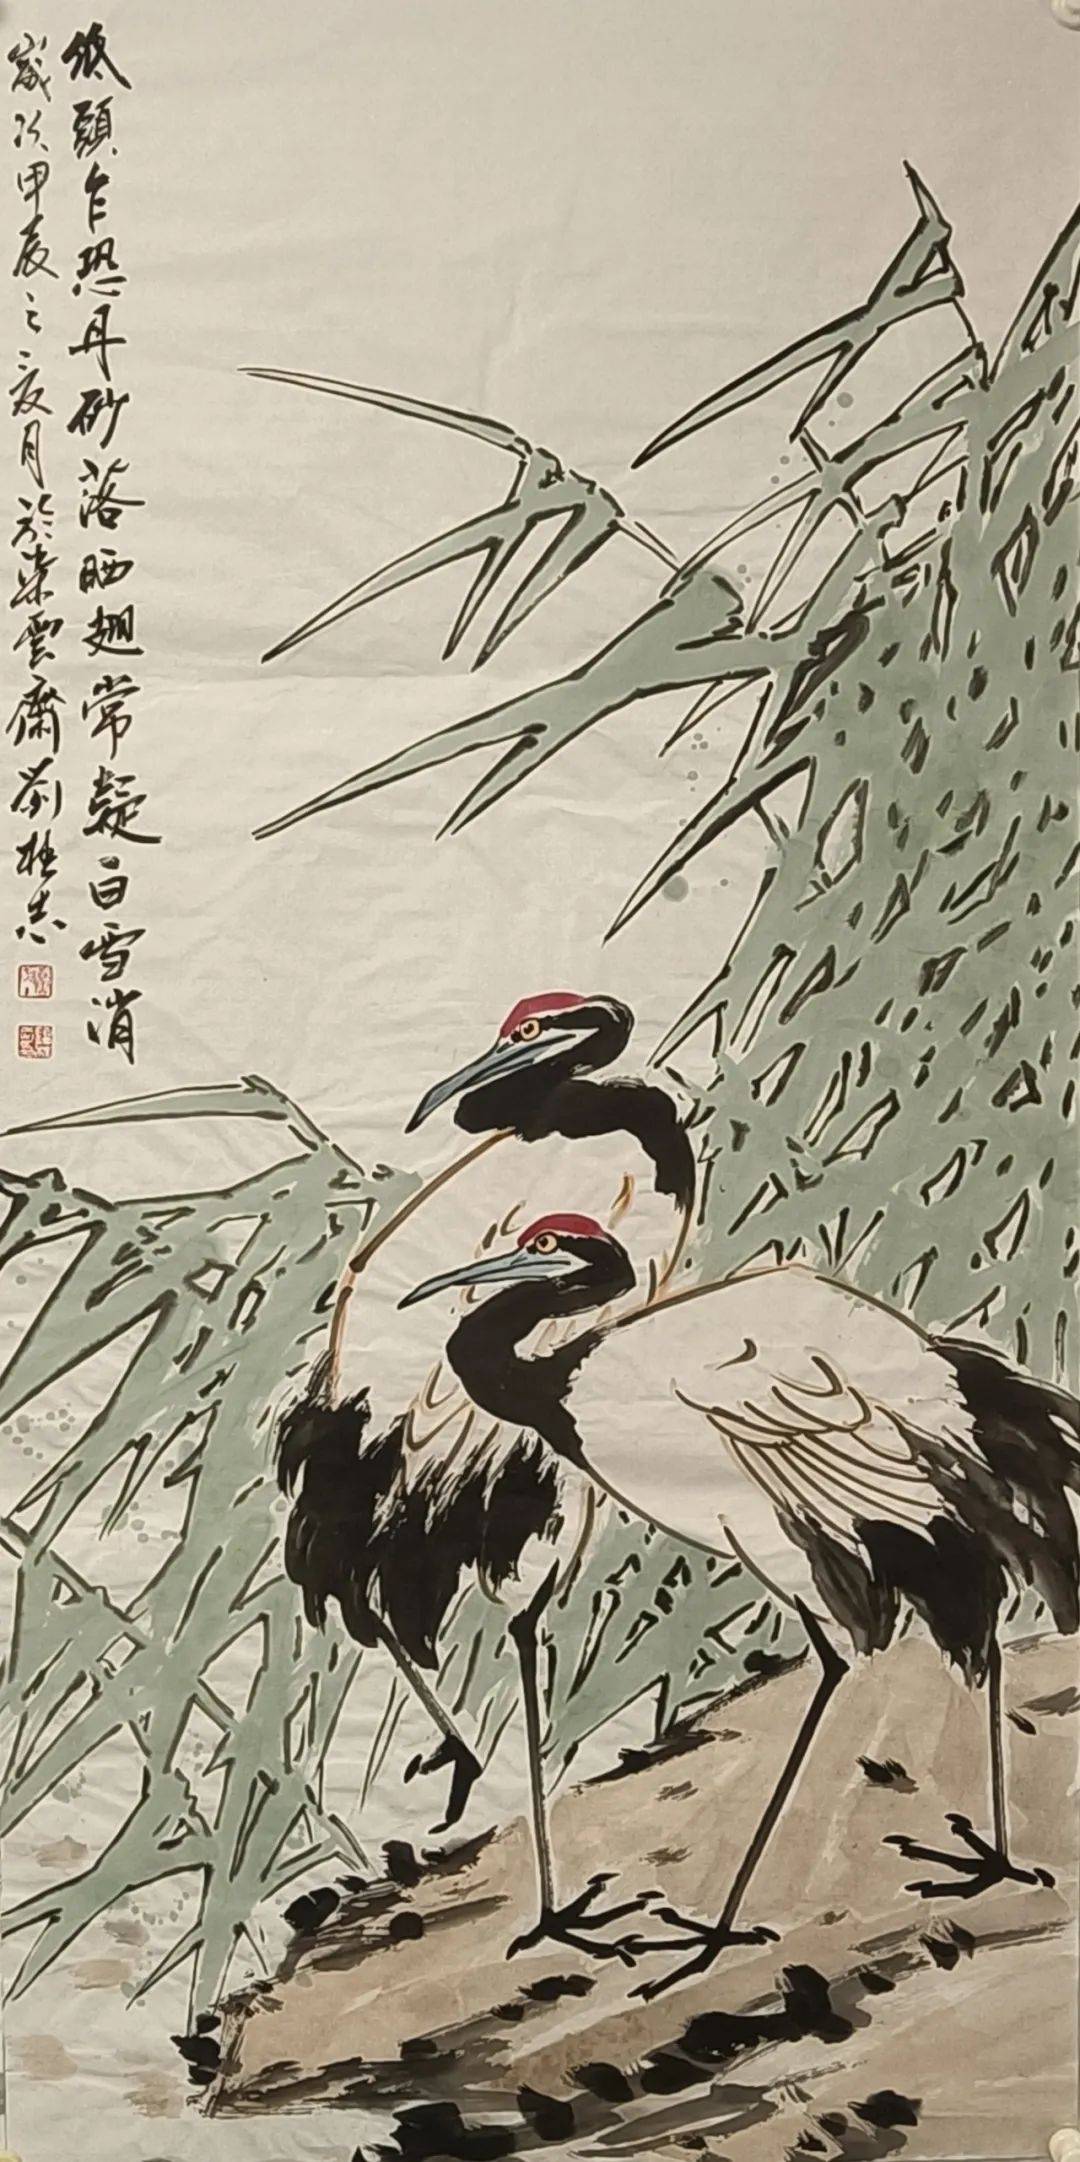 低頭乍恐丹砂落晒翅常疑白雪消
歲次甲辰之亥月於柒雲齋劉桂志